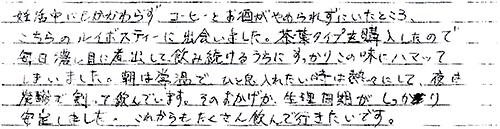 妊活中にもかかわらず コーヒーとお酒がやめられずにいたところ、
こちらのルイボスティーに出会いました。茶葉タイプを購入したので
毎日濃い目に煮出して飲み続けるうちに すっかりこの味にハマって
しまいました。朝は常温で、ひと息入れたい時は熱々にして、夜は
炭酸で割って飲んでいます。そのおかげか、生理周期がしっかり
安定しました。これからもたくさん飲んで行きたいです。